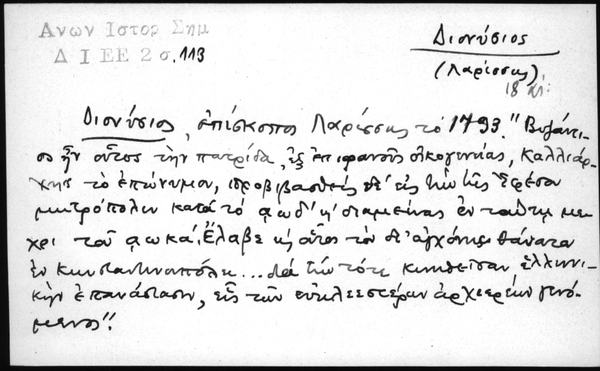 Ανων Ιστορ Σημ
Δ Ι ΕΕ 2 σ. 113
Διονύσιος
(Λαρίσσης)
18 αι:
Διονύσιος, ἐπίσκοπος Λαρίσσης τὸ 1793. "Βυζάντι-
ος ἦν οὗτος τὴν πατρίδα, ἐξ ἐπιφανοῦς οἰκογενείας, Καλλιάρ-
χης τὸ ἐπώνυμον, προβιβασθεὶς δ' εἰς τὴν τῆς Ἐφέσου
μητρόπολιν κατὰ τὸ ͵αωδ' κ' διαμείνας ἐν ταύτῃ μέ-
χρι τοῦ ͵αωκά. Ἔλαβε κ' οὗτος τὸν δι' ἀγχόνης θάνατον
ἐν Κωνσταντινουπόλει... διὰ τὴν τότε κινηθεῖσαν ἑλληνι-
κὴν ἐπανάστασιν, εἷς τῶν εὐκλεεστέρων ἀρχιερέων γενό-
μενος".